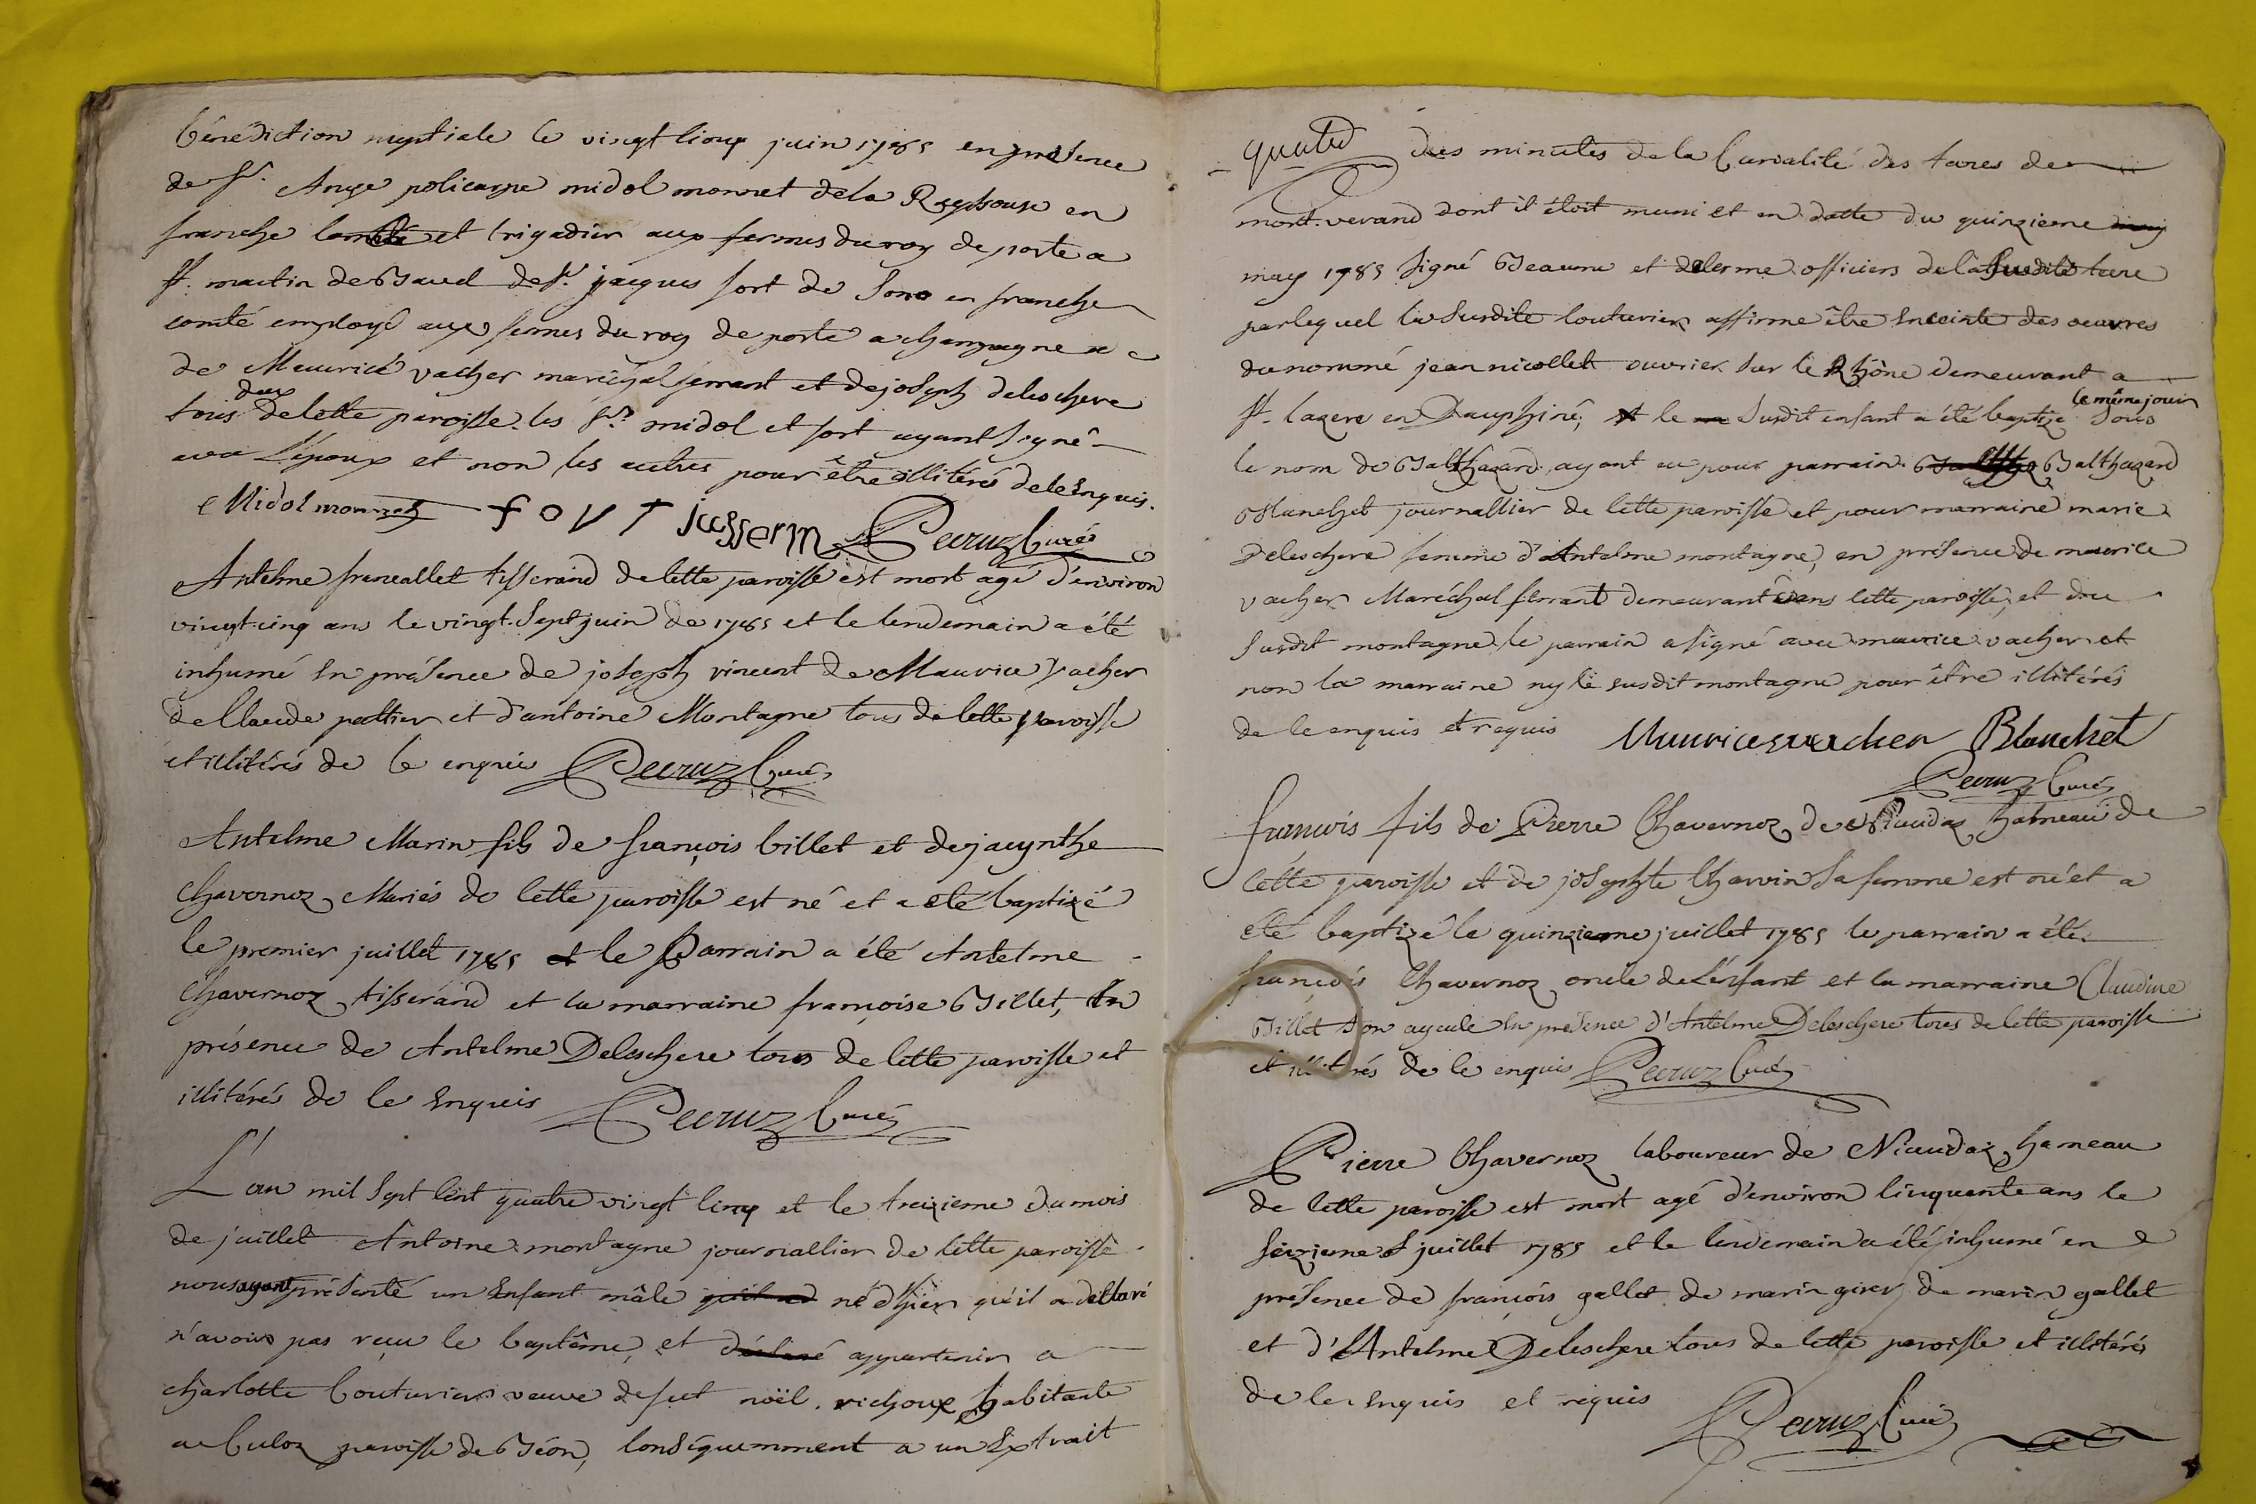 bénédiction nuptiale le vingt cinq juin 1785 en présence
de Sr. Ange policarpe midol monnet de la Rxyhouse en
franche comté et brigadier aux fermes du roy de poste a
St. martin de Bavel de Sr. jacques fort de en franche
comté employé aux fermes du roy de poste a champagne
de Maurice vacher maréchal ferrant et de joseph deleschere
tous deux de cette paroisse. les Srs. midol et fort ayant signé
avec l'époux et non les autres pour être illitérés de ce enquis.
Midol monnet fort jasserm Decruz Curé
Antelme francallet tisserand de cette paroisse est mort agé d'environ
vingt-cinq ans le vingt-sept juin de 1785 et le lendemain a été
inhumé en présence de joseph vincent de Maurice Vacher
de Claude pottier et d'antoine Montagne tous de cette paroisse
et illitérés de ce enquis Decruz Curé
Antelme Marin fils de françois billet et de jacynthe
Chavernoz Mariés de cette paroisse est né et a été baptizé
le premier juillet 1785 et le Parrain a été Antelme
Chavernoz tisserand et la marraine françoise Billet, En
présence de Antelme Deleschere tous de cette paroisse et
illitérés de ce enquis Decruz Curé
L'an mil sept cent quatre vingt cinq et le treizieme du mois
de juillet Antoine montagne journallier de cette paroisse
nous ayant présenté un enfant mâle né d'hier qu'il a déclaré
n'avoir pas reçu le baptême, et déclaré appartenir a
charlotte Couturier veuve de fut noël richoux habitante
a Culoz paroisse de Béon, conséquemment a un Extrait
quoted des minutes de la Curialité des tares de
mont-verand dont il étoit muni et en datte du quinzieme
may 1785 signé Beaume et delerme officiers de la susdite tare
par lequel la susdite Couturier affirme être enceinte des oeuvres
du nommé jean nicollet ouvrier sur le Rhône demeurant a
St. lazere en Dauphiné; et le susdit enfant a été baptizé le même jour sous
le nom de Balthazard ayant eu pour parrain Balthazard
Blanchet journallier de cette paroisse et pour marraine marie
Deleschere femme d'Antelme montagne, en présence de maurice
vacher Maréchal ferrant demeurant dans cette paroisse, et du
susdit montagne. le parrain a signé avec maurice vacher et
non la marraine ny le susdit montagne pour être illitérés
de ce enquis et requis Mauricevacher Blanchet
Decruz Curé
françois fils de Pierre Chavernoz de Niaudaz hameau de
Cette paroisse et de josephte Charvin sa femme est né et a
été baptizé le quinzieme juillet 1785 le parrain a été
françois Chavernoz oncle de l'enfant et la marraine Claudine
Billet son ayeule En présence d'Antelme Deleschere tous de cette paroisse
et illitérés de ce enquis Decruz Curé
Pierre Chavernoz laboureur de Niaudaz hameau
de Cette paroisse est mort agé d'environ cinquante ans le
seizieme juillet 1785 et le lendemain a été inhumé en
présence de françois gallet de marin girer de marin gallet
et d'Antelme Deleschere tous de cette paroisse et illitérés
de ce enquis et requis Decruz Curé